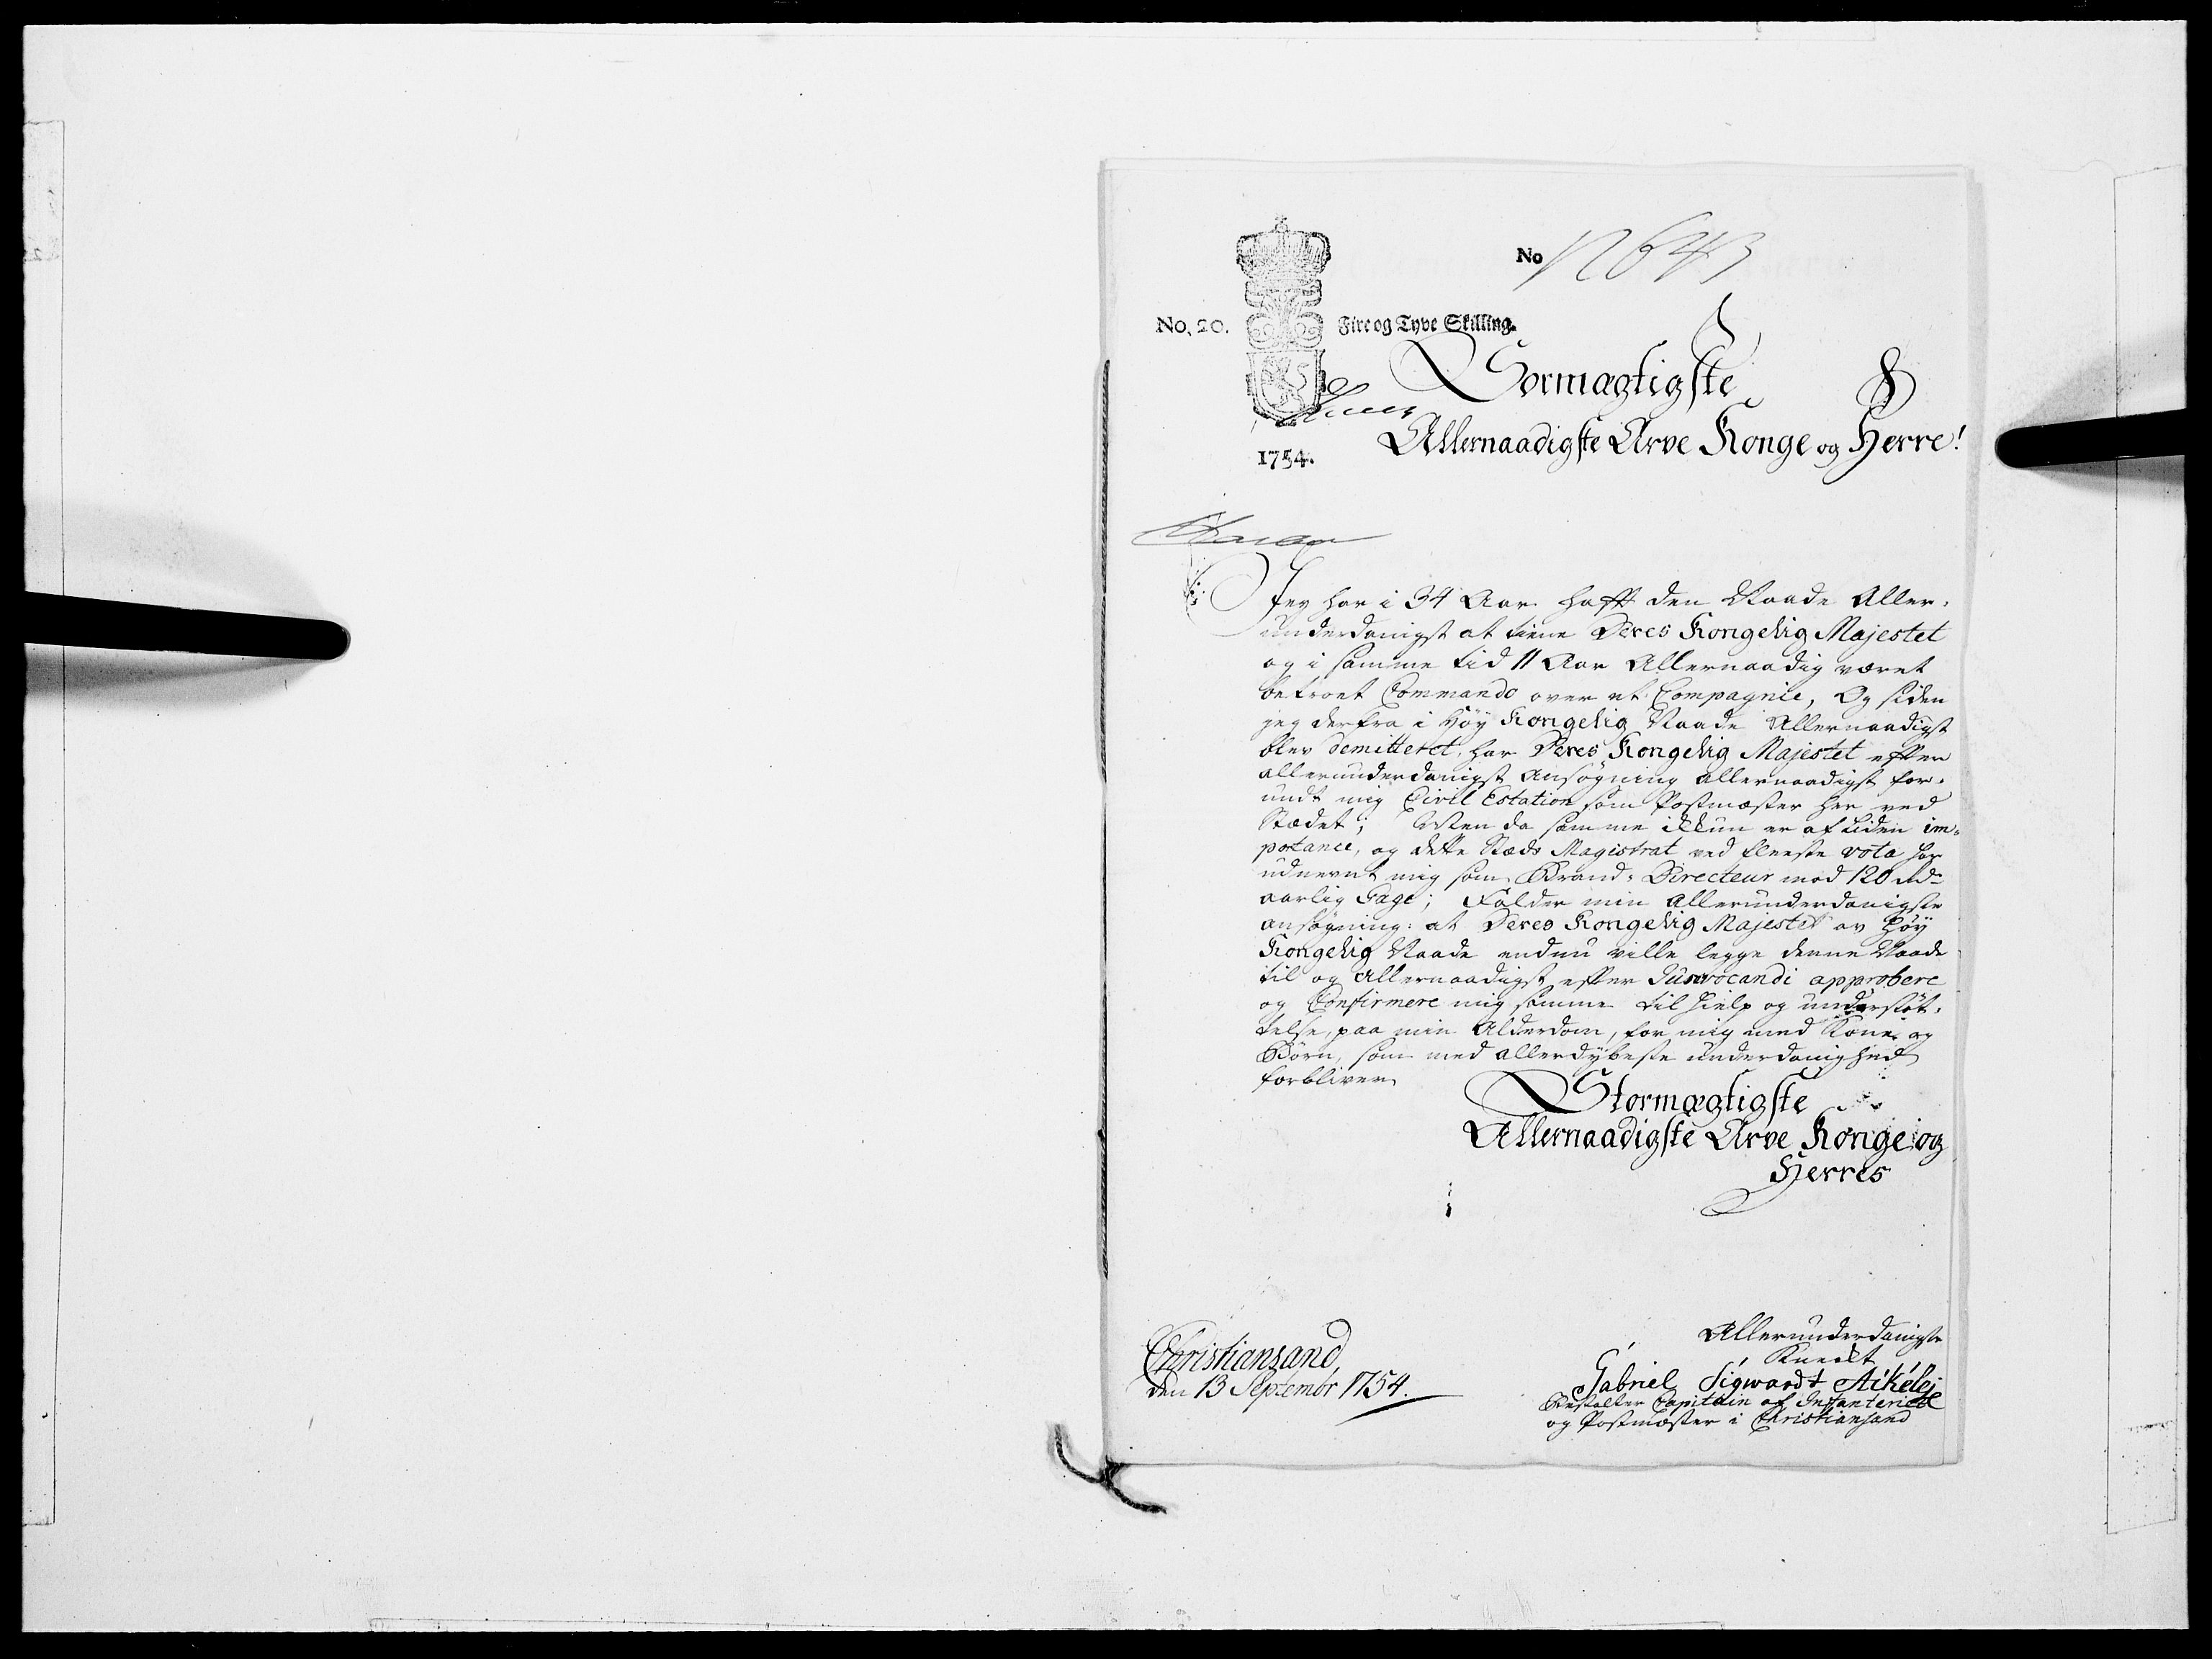 No 12643
No, 20.
Fire og Tyve Skilling.
Stormægtigste
Allernaadigste Arve Konge og Herre!
1754.
Jeg har i 34 Aar hafft den Naade Aller-
underdanigst at tiene Deres Kongelig Majestet
og i samme tid 11 Aar Allernaadig været
betroet Commando over et Compagnie, Og siden
jeg derfra i Høy Kongelig Naade Allernaadigst
blev demitteret, har Deres Kongelig Majestet efter
allerunderdanigst Ansøgning allernaadigst for-
undt mig Civil Estation som Postmæster her ved
Stædet; Men da samme ikkun er af Liden im-
portance, og dette Stæds Magistrat ved fleeste vota har
udnevnt mig som Brand-Directeur med 120 Rd
aarlig Gage; Falder min Allerunderdanigste
ansøgning: at Deres Kongelig Majestet av Høy
Kongelig Naade endnu ville legge denne Naade
til og Allernaadigst efter Jus vocandi approbere
og Confirmere mig samme til hielp og understøt-
telse, paa min Alderdom, for mig med Kone og
Børn, som med allerdybeste underdanighed
forbliver
Stormægtigste
Allernaadigste Arve Konge og
Herres
Christiansand
den 13 Septembr 1754.
Allerunderdanigste
Knecht
Gabriel Sigwardt Akeléj
Bestalter Capitain af Infanteriet
og Postmæster i Christiansand